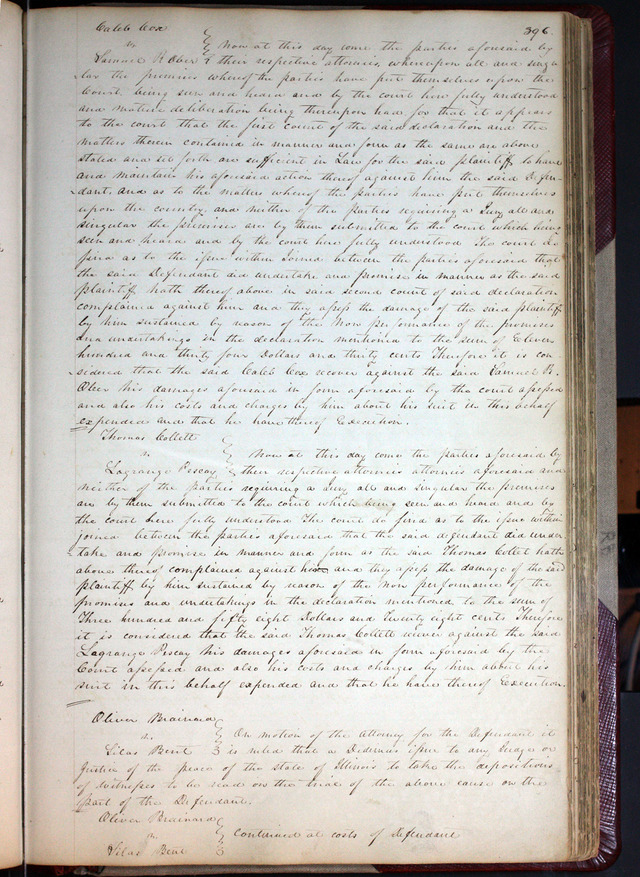 Caleb Cox
396.
vs } Now at this day come the parties aforesaid by
Samuel R. Ober } their respective attornies, whereupon all and singu
lar the premises whereof the parties have put themselves upon the
Court, being seen and heard and by the court here fully understood
and mature deliberation being thereupon had, for that it appears
to the court that the first count of the said declaration and the
matters therein contained in manner and form as the same are above
stated and set forth are sufficient in Law for the said plaintiff to have
and maintain his aforesaid action thereof against him the said Defen-
dant. and as to the matters whereof the parties have put themselves
upon the country, and neither of the parties requiring a Jury all and
singular the premises are by them submitted to the court which being
seen and heard and by the court here fully understood The court do
find as to the issue within Joined between the parties aforesaid that
the said Defendant did undertake and promise in manner as the said
plaintiff hath thereof above in said second count of said declaration
complained against him and they assess the damage of the said plaintiff
by him sustained by reason of the Non performance of the promises
and undertakings in the declaration mentioned to the sum of Eleven
hundred and thirty four Dollars and thirty cents Therefore it is con-
sidered that the said Caleb Cox recover against the said Samuel R.
Ober his damages aforesaid in form aforesaid by the court assessed
and also his costs and charges by him about his suit in this behalf
expended and that he have thereof Execution.
Thomas Collett
vs } Now at this day come the parties aforesaid by
Lagrange Pescay } their respective attornies attornies aforesaid and
neither of the parties requiring a Jury all and singular the premises
are by them submitted to the court which being seen and heard and by
the court here fully understood The court do find as to the issue within
joined between the parties aforesaid that the said defendant did under
take and promise in manner and form as the said Thomas Collet hath
above thereof complained against him and they assess the damage of the said
plaintiff by him sustained by reason of the Non performance of the
promises and undertakings in the declaration mentioned to the sum of
Three hundred and fifty eight Dollars and twenty eight cents Therefore
it is considered that the said Thomas Collett recover against the said
Lagrange Pescay his damages aforesaid in form aforesaid by the
Court assessed and also his costs and charges by him about his
suit in this behalf expended and that he have thereof Execution.
Oliver Brainard
vs. } On motion of the Attorney for the Defendant it
Silas Bent } is ruled that a Dedimus issue to any Judge or
Justice of the peace of the state of Illinois to take the depositions
of witnesses to be read on the trial of the above cause on the
part of the Defendant.
Oliver Brainard
vs } Continued at costs of Defendant
Silas Bent